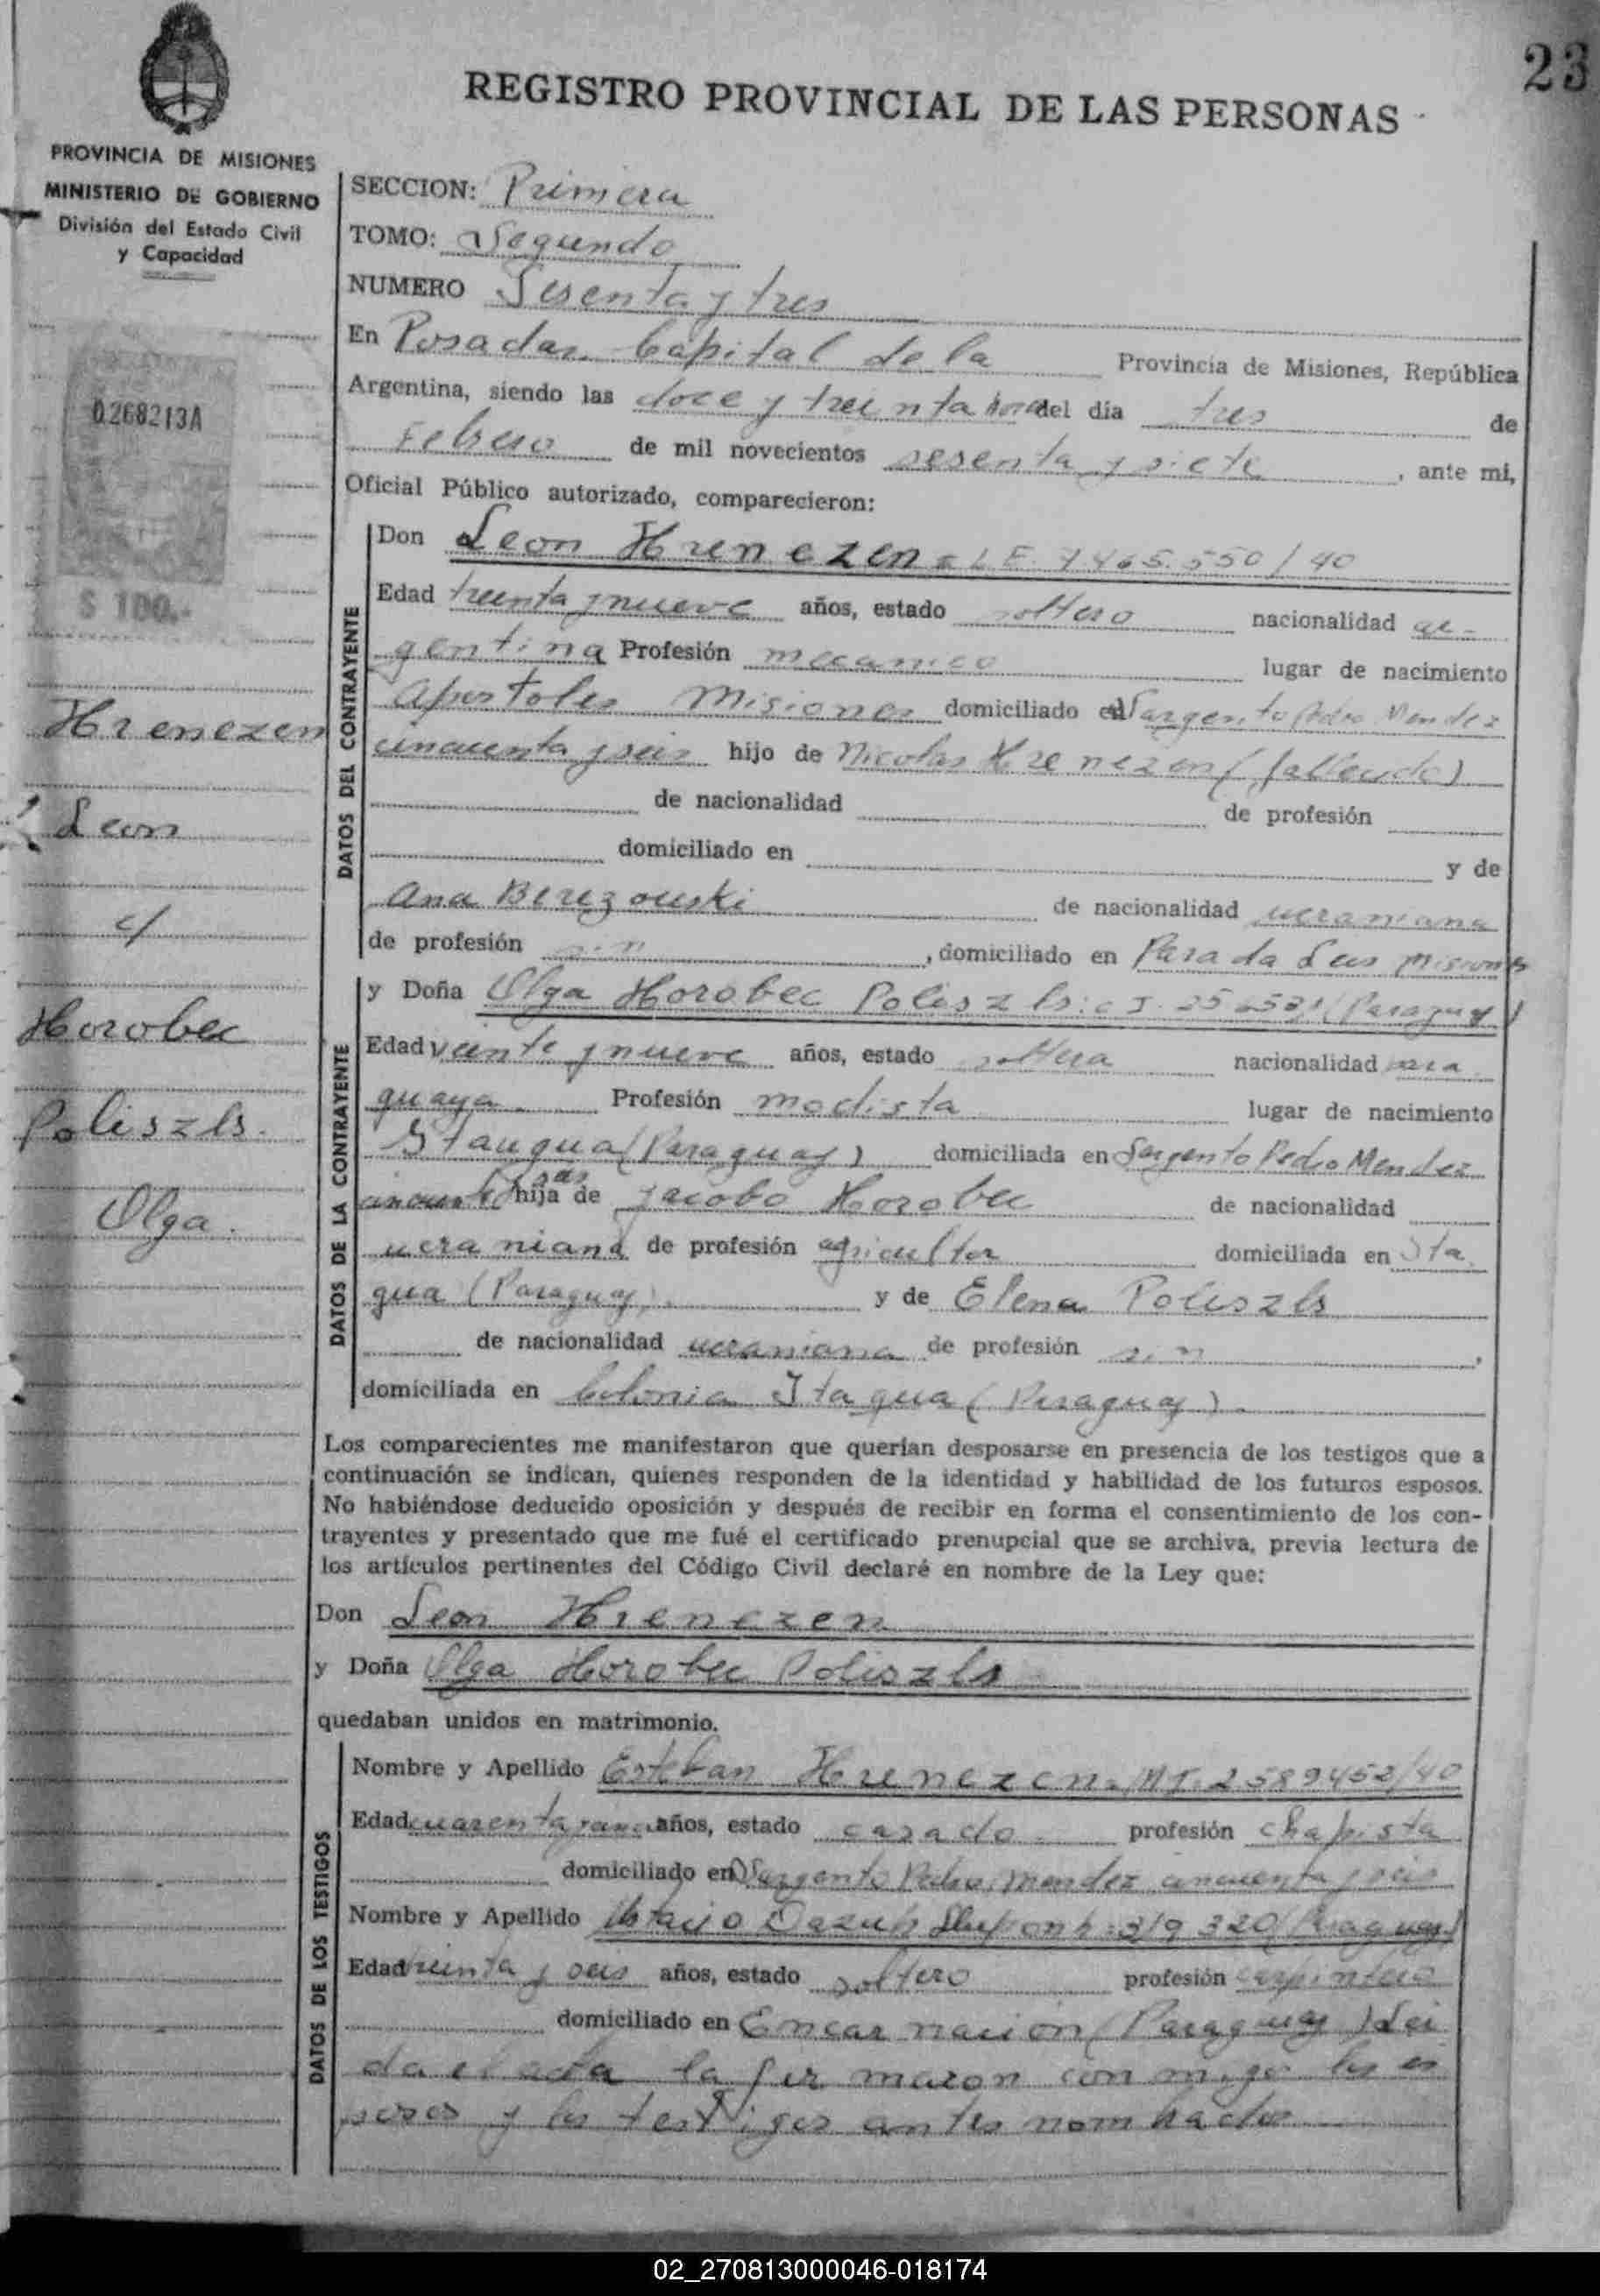 23
REGISTRO PROVINCIAL DE LAS PERSONAS
PROVINCIA DE MISIONES
MINISTERIO DE GOBIERNO
División del Estado Civil
y Capacidad
0268213A
$ 100.-
Hrenezen
Leon
c/
Horobec
Poliszls.
Olga.
SECCION: Primera
TOMO: Segundo
NUMERO Sesenta y tres
En Posadas, Capital de la Provincia de Misiones, República
Argentina, siendo las doce y treinta horas del día tres de
Febrero de mil novecientos sesenta y siete, ante mi,
Oficial Público autorizado, comparecieron:
DATOS DEL CONTRAYENTE
Don Leon Hrenezen = L E. 7.465.550/40
Edad treinta y nueve años, estado soltero nacionalidad ar-
gentina Profesión mecanico lugar de nacimiento
Apostoles Misiones domiciliado en Sargento Pedro Mendez
cincuenta y seis hijo de Nicolas Hrenezen (fallecido)
de nacionalidad de profesión
domiciliado en y de
Ana Berezouski de nacionalidad ucraniana
de profesión sin, domiciliado en Parada Leis Misiones
DATOS DE LA CONTRAYENTE
y Doña Olga Horobec Poliszls: c I. (Paraguay)
Edad veinte y nueve años, estado soltera nacionalidad para
guaya. Profesión modista lugar de nacimiento
(Paraguay) domiciliada en Sargento Pedro Mendez
cincuenta seis hija de Jacobo Horobec de nacionalidad
ucraniana de profesión agricultor domiciliada en Ita
gua (Paraguay). y de Elena Poliszls
de nacionalidad ucraniana de profesión sin,
domiciliada en Colonia Itagua (Paraguay).
Los comparecientes me manifestaron que querían desposarse en presencia de los testigos que a
continuación se indican, quienes responden de la identidad y habilidad de los futuros esposos.
No habiéndose deducido oposición y después de recibir en forma el consentimiento de los con-
trayentes y presentado que me fué el certificado prenupcial que se archiva, previa lectura de
los artículos pertinentes del Código Civil declaré en nombre de la Ley que:
Don Leon Hrenezen
y Doña Olga Horobec Poliszls
quedaban unidos en matrimonio.
DATOS DE LOS TESTIGOS
Nombre y Apellido Esteban Hrenezen. M I. 2589452/40
Edad cuarenta y años, estado casado profesión chapista
domiciliado en Sargento Pedro Mendez cincuenta y seis
Nombre y Apellido 319320 (Paraguay)
Edad treinta y seis años, estado soltero profesión carpintero
domiciliado en Encarnación (Paraguay) Lei
da el acta la firmaron conmigo los es
posos y los testigos antes nombrados
02_270813000046-018174